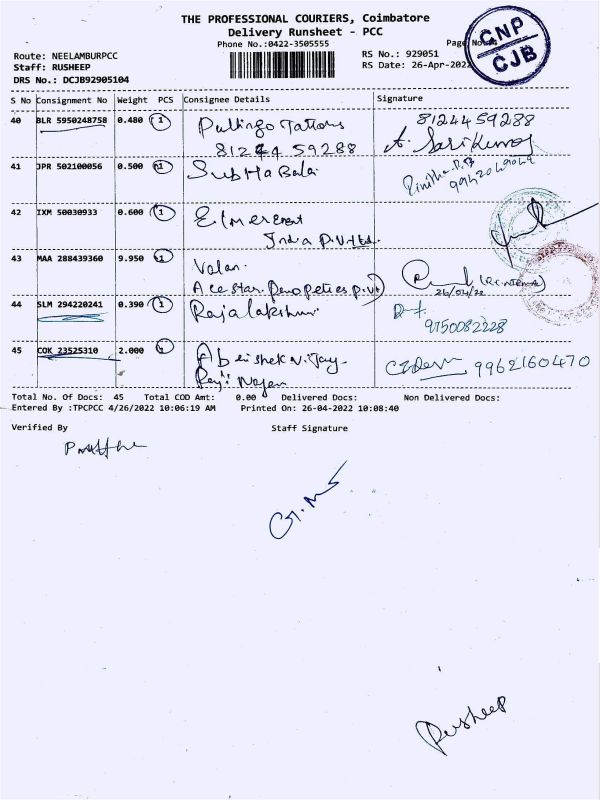 THE PROFESSIONAL COURIERS, Coimbatore
Delivery Runsheet - PCC
Phone No.:0422-3505555
Page No.
CNP
CJB
Route: NEELAMBURPCC
Staff: RUSHEEP
DRS No.: DCJB92905104
RS No.: 929051
RS Date: 26-Apr-2022
S No Consignment No Weight PCS Consignee Details Signature
40 BLR 5950248758 0.480 1 8124459288
81244 59288
41 JPR 502100056 0.500 1 Subha Bala
9942049049
42 IXM 50030933 0.600 1
India P.Vt Ltd.
43 MAA 288439360 9.950 1 Valan.
Ace star P.Vt
26/04/22
44 SLM 294220241 0.390 1 Rajalakshmi
9750082228
45 COK 23525310 2.000 1 Abhishek Vijay
Rajan
9962160470
Total No. Of Docs: 45 Total COD Amt: 0.00 Delivered Docs: Non Delivered Docs:
Entered By :TPCPCC 4/26/2022 10:06:19 AM Printed On: 26-04-2022 10:08:40
Verified By Staff Signature
Rusheep